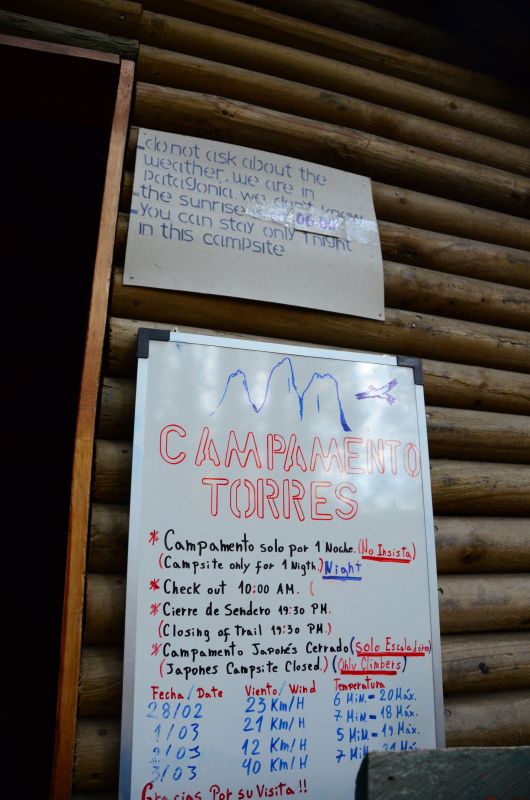 - do not ask about the
weather, we are in
patagonia we don't know
- the sunrise 06:00
- you can stay only 1 night
in this campsite
CAMPAMENTO
TORRES
* Campamento solo por 1 Noche. (No Insista)
(Campsite only for 1 Nigth.) Night
* Check out 10:00 AM. (
* Cierre de Sendero 19:30 PM.
(Closing of Trail 19:30 PM.)
* Campamento Japonés Cerrado (Solo Escaladores)
(Japones Campsite Closed.) (Only Climbers)
Fecha / Date Viento / Wind Temperatura
28/02 23 Km/H 6 Min. - 20 Máx.
1/03 21 Km/H 7 Min. - 18 Máx.
2/03 12 Km/H 5 Min. - 19 Máx.
3/03 40 Km/H 7 Min. - 21 Máx.
Gracias Por su Visita !!